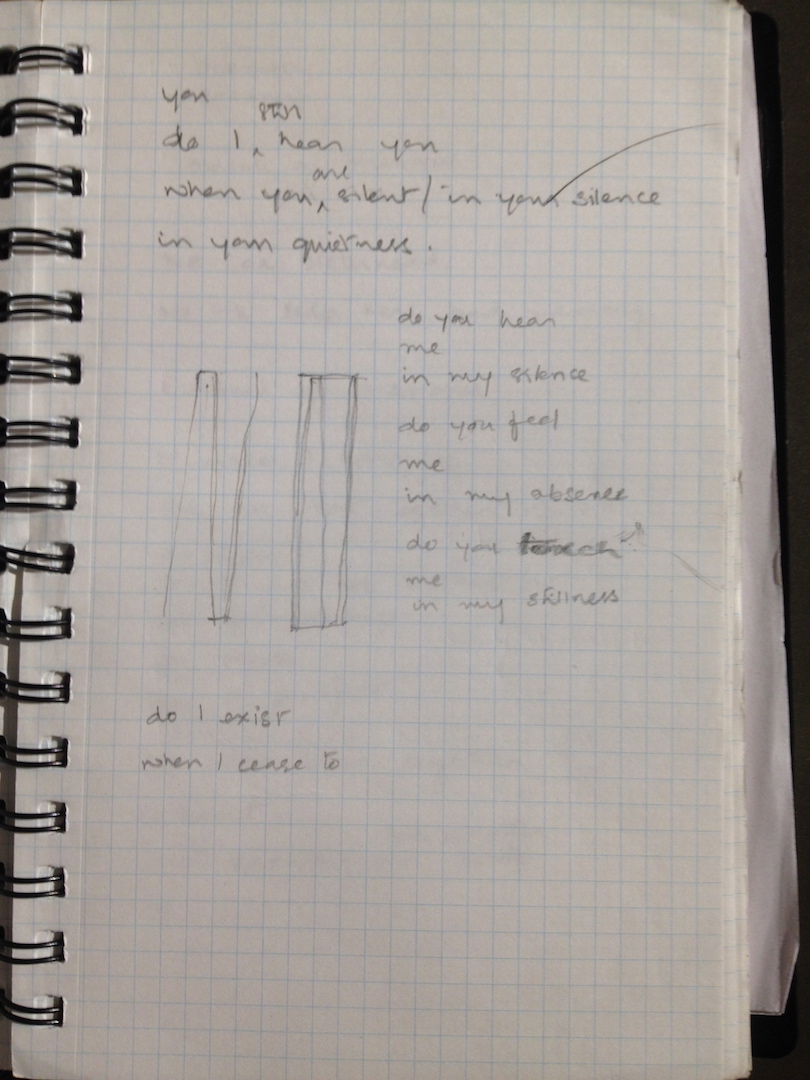 you
still
do I ‸ hear you
are
when you ‸ silent / in your silence
in your quietness.
do you hear
me
in my silence
do you feel
me
in my absence
do you touch
me
in my stillness
do I exist
when I cease to